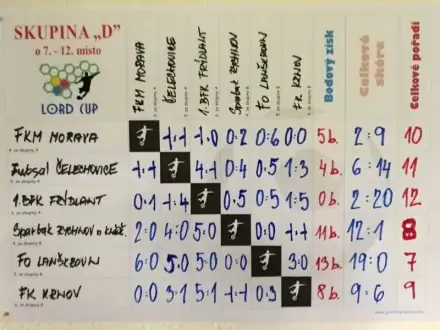 SKUPINA „D"
o 7. - 12. místo
LORD CUP
FKM MORAVA
ČELECHOVICE
1. BFK FRÝDLANT
Spartak RYCHNOV
FO LANŠKROUN
FK KRNOV
Bodový zisk
Celkové skóre
Celkové pořadí
FKM MORAVA 1:1 1:0 0:2 0:6 0:0 5b. 2:9 10
Futsal ČELECHOVICE 1:1 4:1 0:4 0:5 1:3 4b. 6:14 11
1. BFK FRÝDLANT 0:1 1:4 0:5 0:5 1:5 0b. 2:20 12
Spartak RYCHNOV 2:0 4:0 5:0 0:0 1:1 11b. 12:1 8
FO LANŠKROUN 6:0 5:0 5:0 0:0 3:0 13b. 19:0 7
FK KRNOV 0:0 3:1 5:1 1:1 0:3 8b. 9:6 9